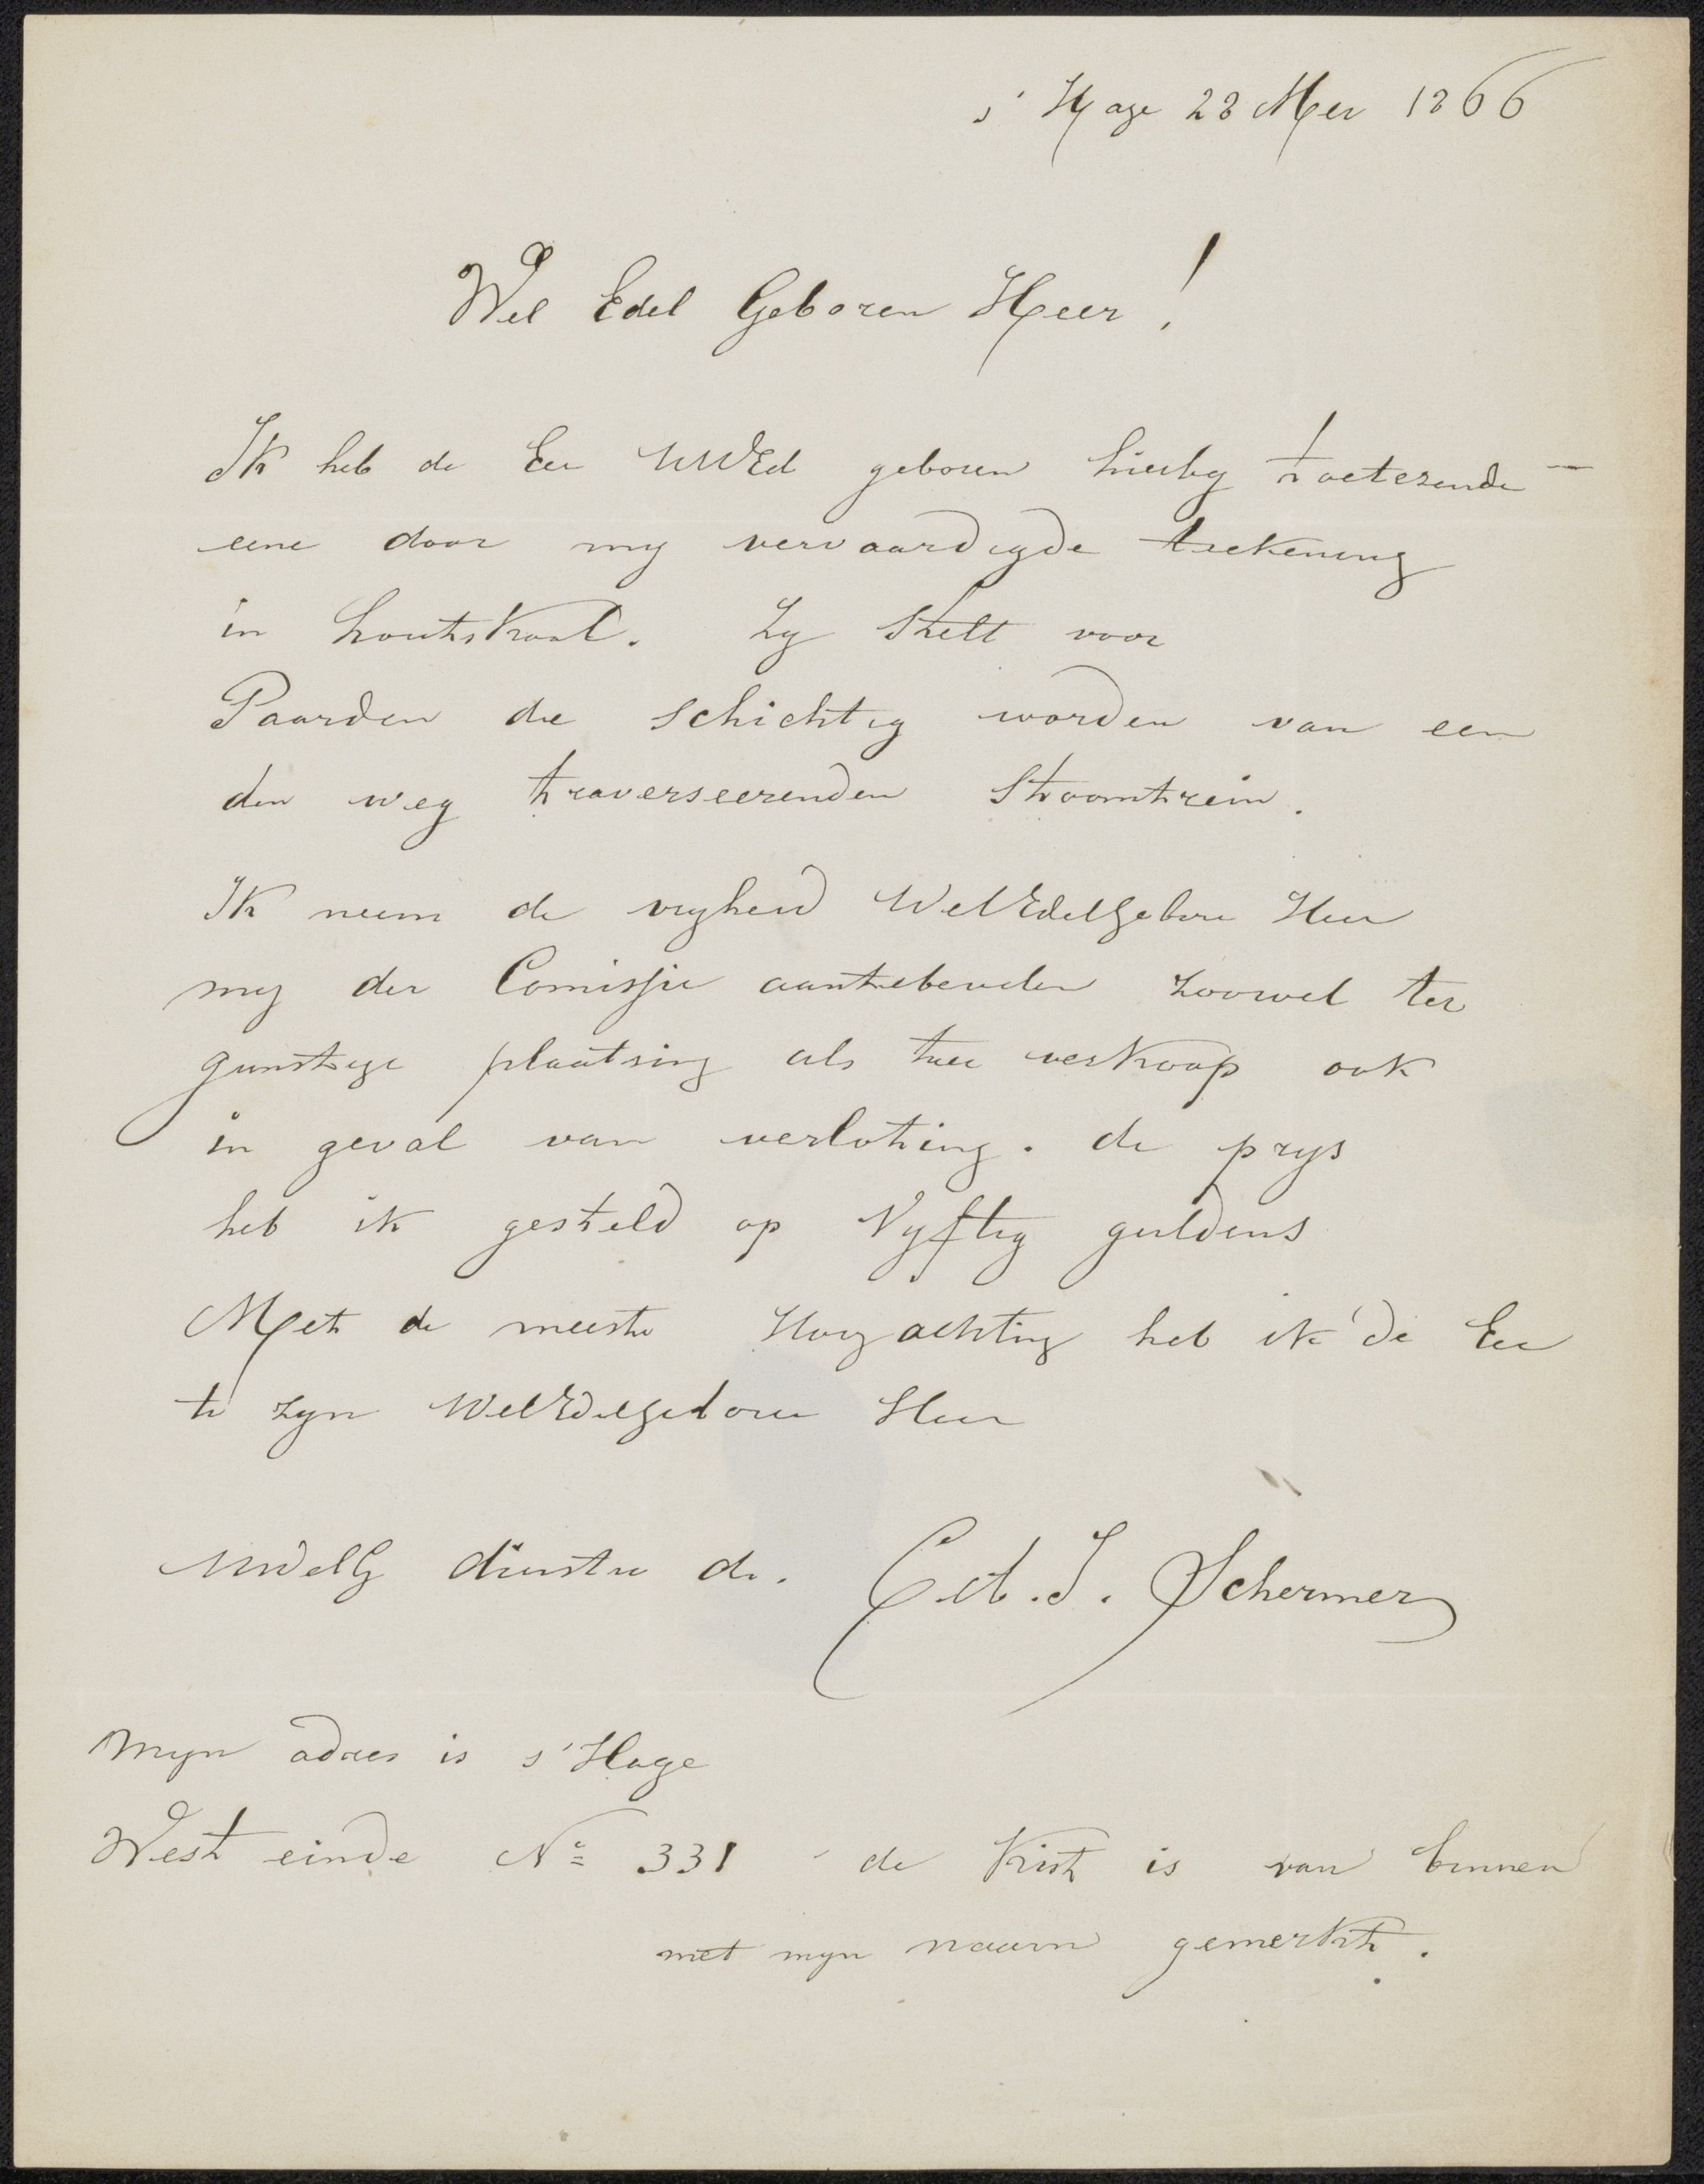 s' Hage 28 Mei 1866
Wel Edel Geboren Heer!
Ik heb de Eer UWEd geboren hierby toetezende
eene door my vervaardigde teekening
in houtskool. Zy stelt voor
Paarden die schichtig worden van een
den weg traverseerenden Stoomtrein.
Ik neem de vryheid WelEdelGebore Heer
my der Comissie aantebevelen zoowel ter
gunstige plaatsing als ter verkoop ook
in geval van verloting. de prys
heb ik gesteld op Vyftig guldens
Met de meeste Hoogachting heb ik de Eer
te zyn WelEdelgebore Heer
UWdelG dienstw dr. Ed. J. Schermer
Myn adres is s'Hage
West einde No 331 de Kist is van binnen
met myn naam gemerkt.